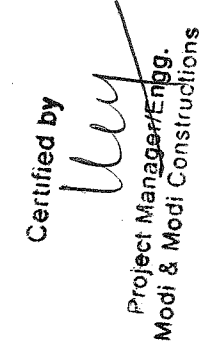 Certified by
Project Manager/Engg.
Modi & Modi Constructions